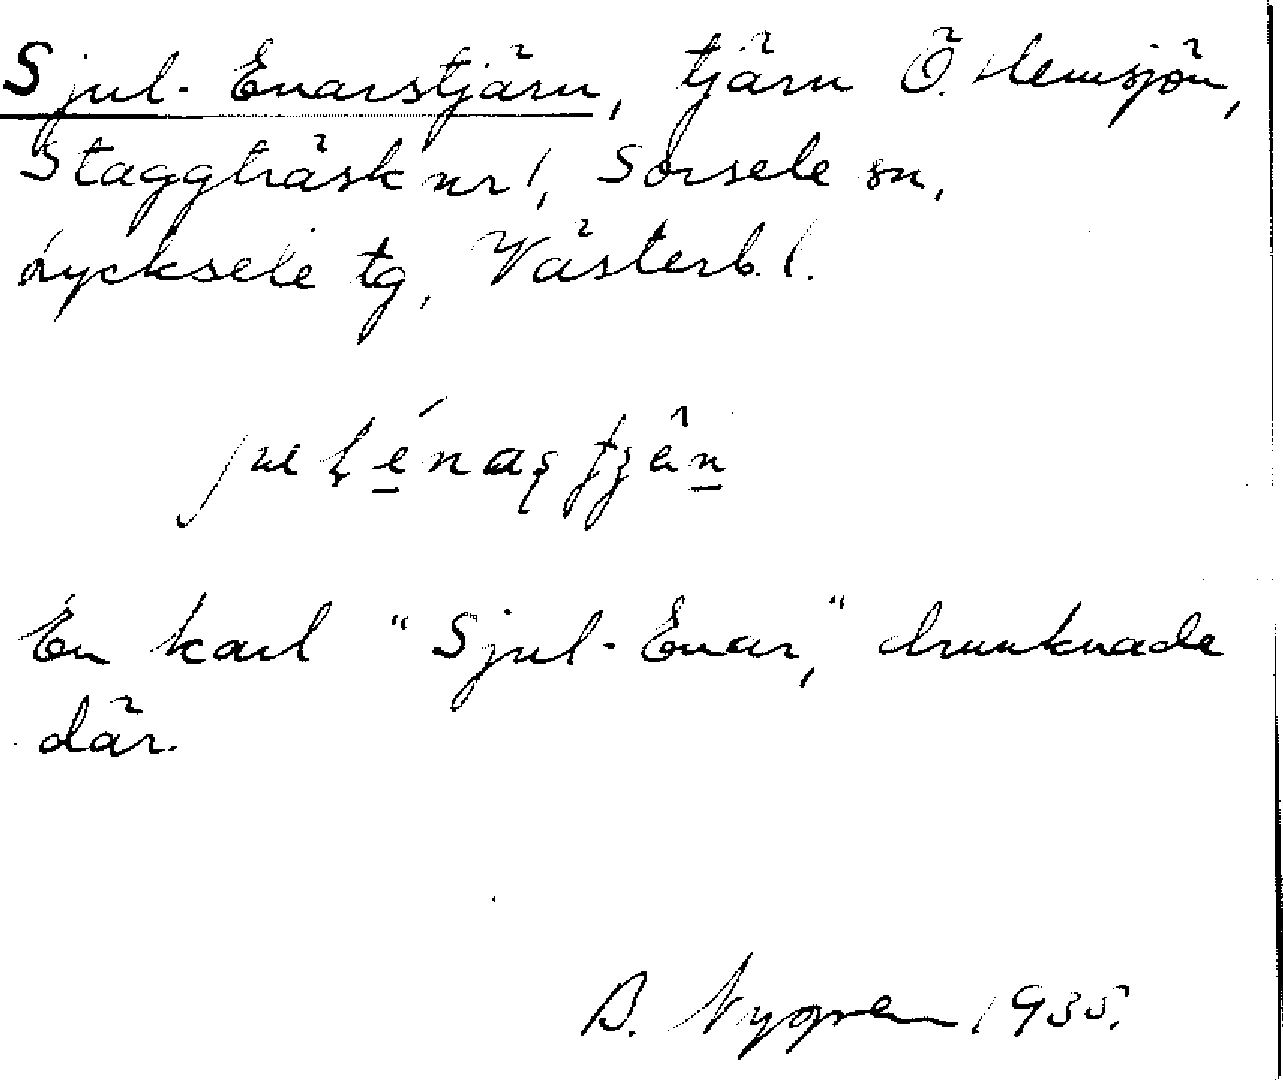 Sjul-Enarstjärn, tjärn Ö. Hemsjön,
Staggträsk nr 1, Sorsele sn,
Lycksele tg, Västerb. l.
En karl "Sjul-Enar," drunknade
där.
Nygren 1935.